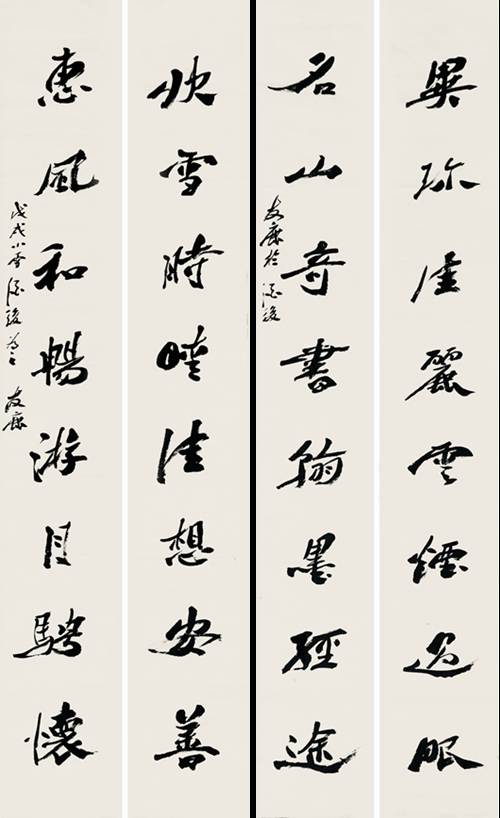 異珎麗雲煙過眼
名山奇書翰墨經途
友於
快雪時晴佳想安善
惠風和暢游目騁懷
戊戌小雪
友